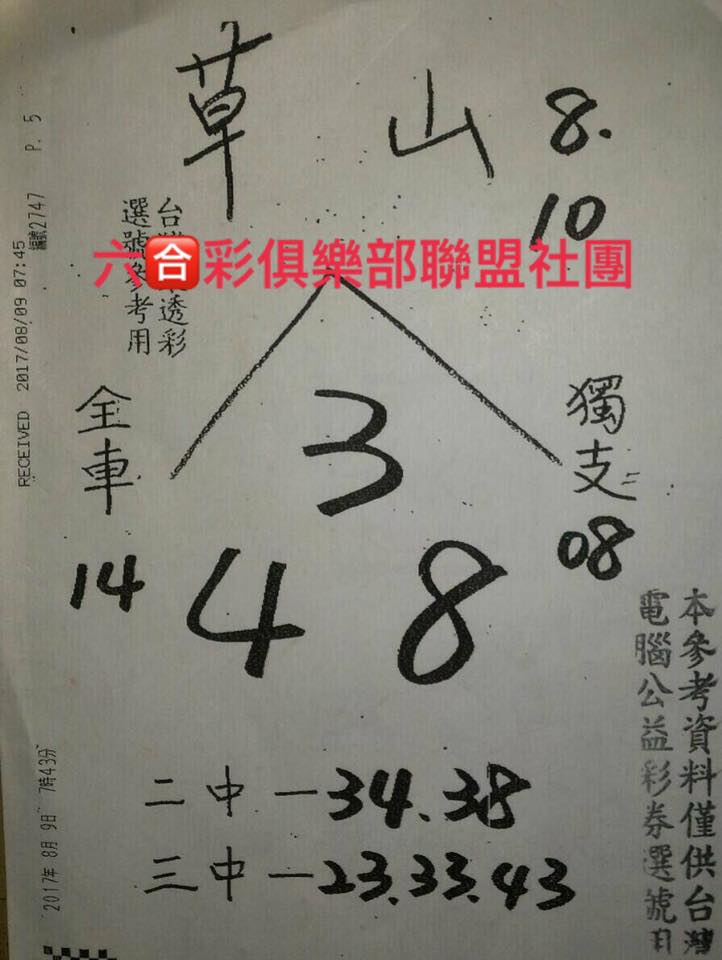 草山 8.
10
台灣 透彩
選號參考用
六合彩俱樂部聯盟社團
RECEIVED 2017/08/09 07:45
編號2747 P. 5
全車
14
獨支
08
3
4 8
本參考資料僅供台灣
電腦公益彩券選號用
二中－34.38
三中－23.33.43
2017年 8月 9日 7時43分